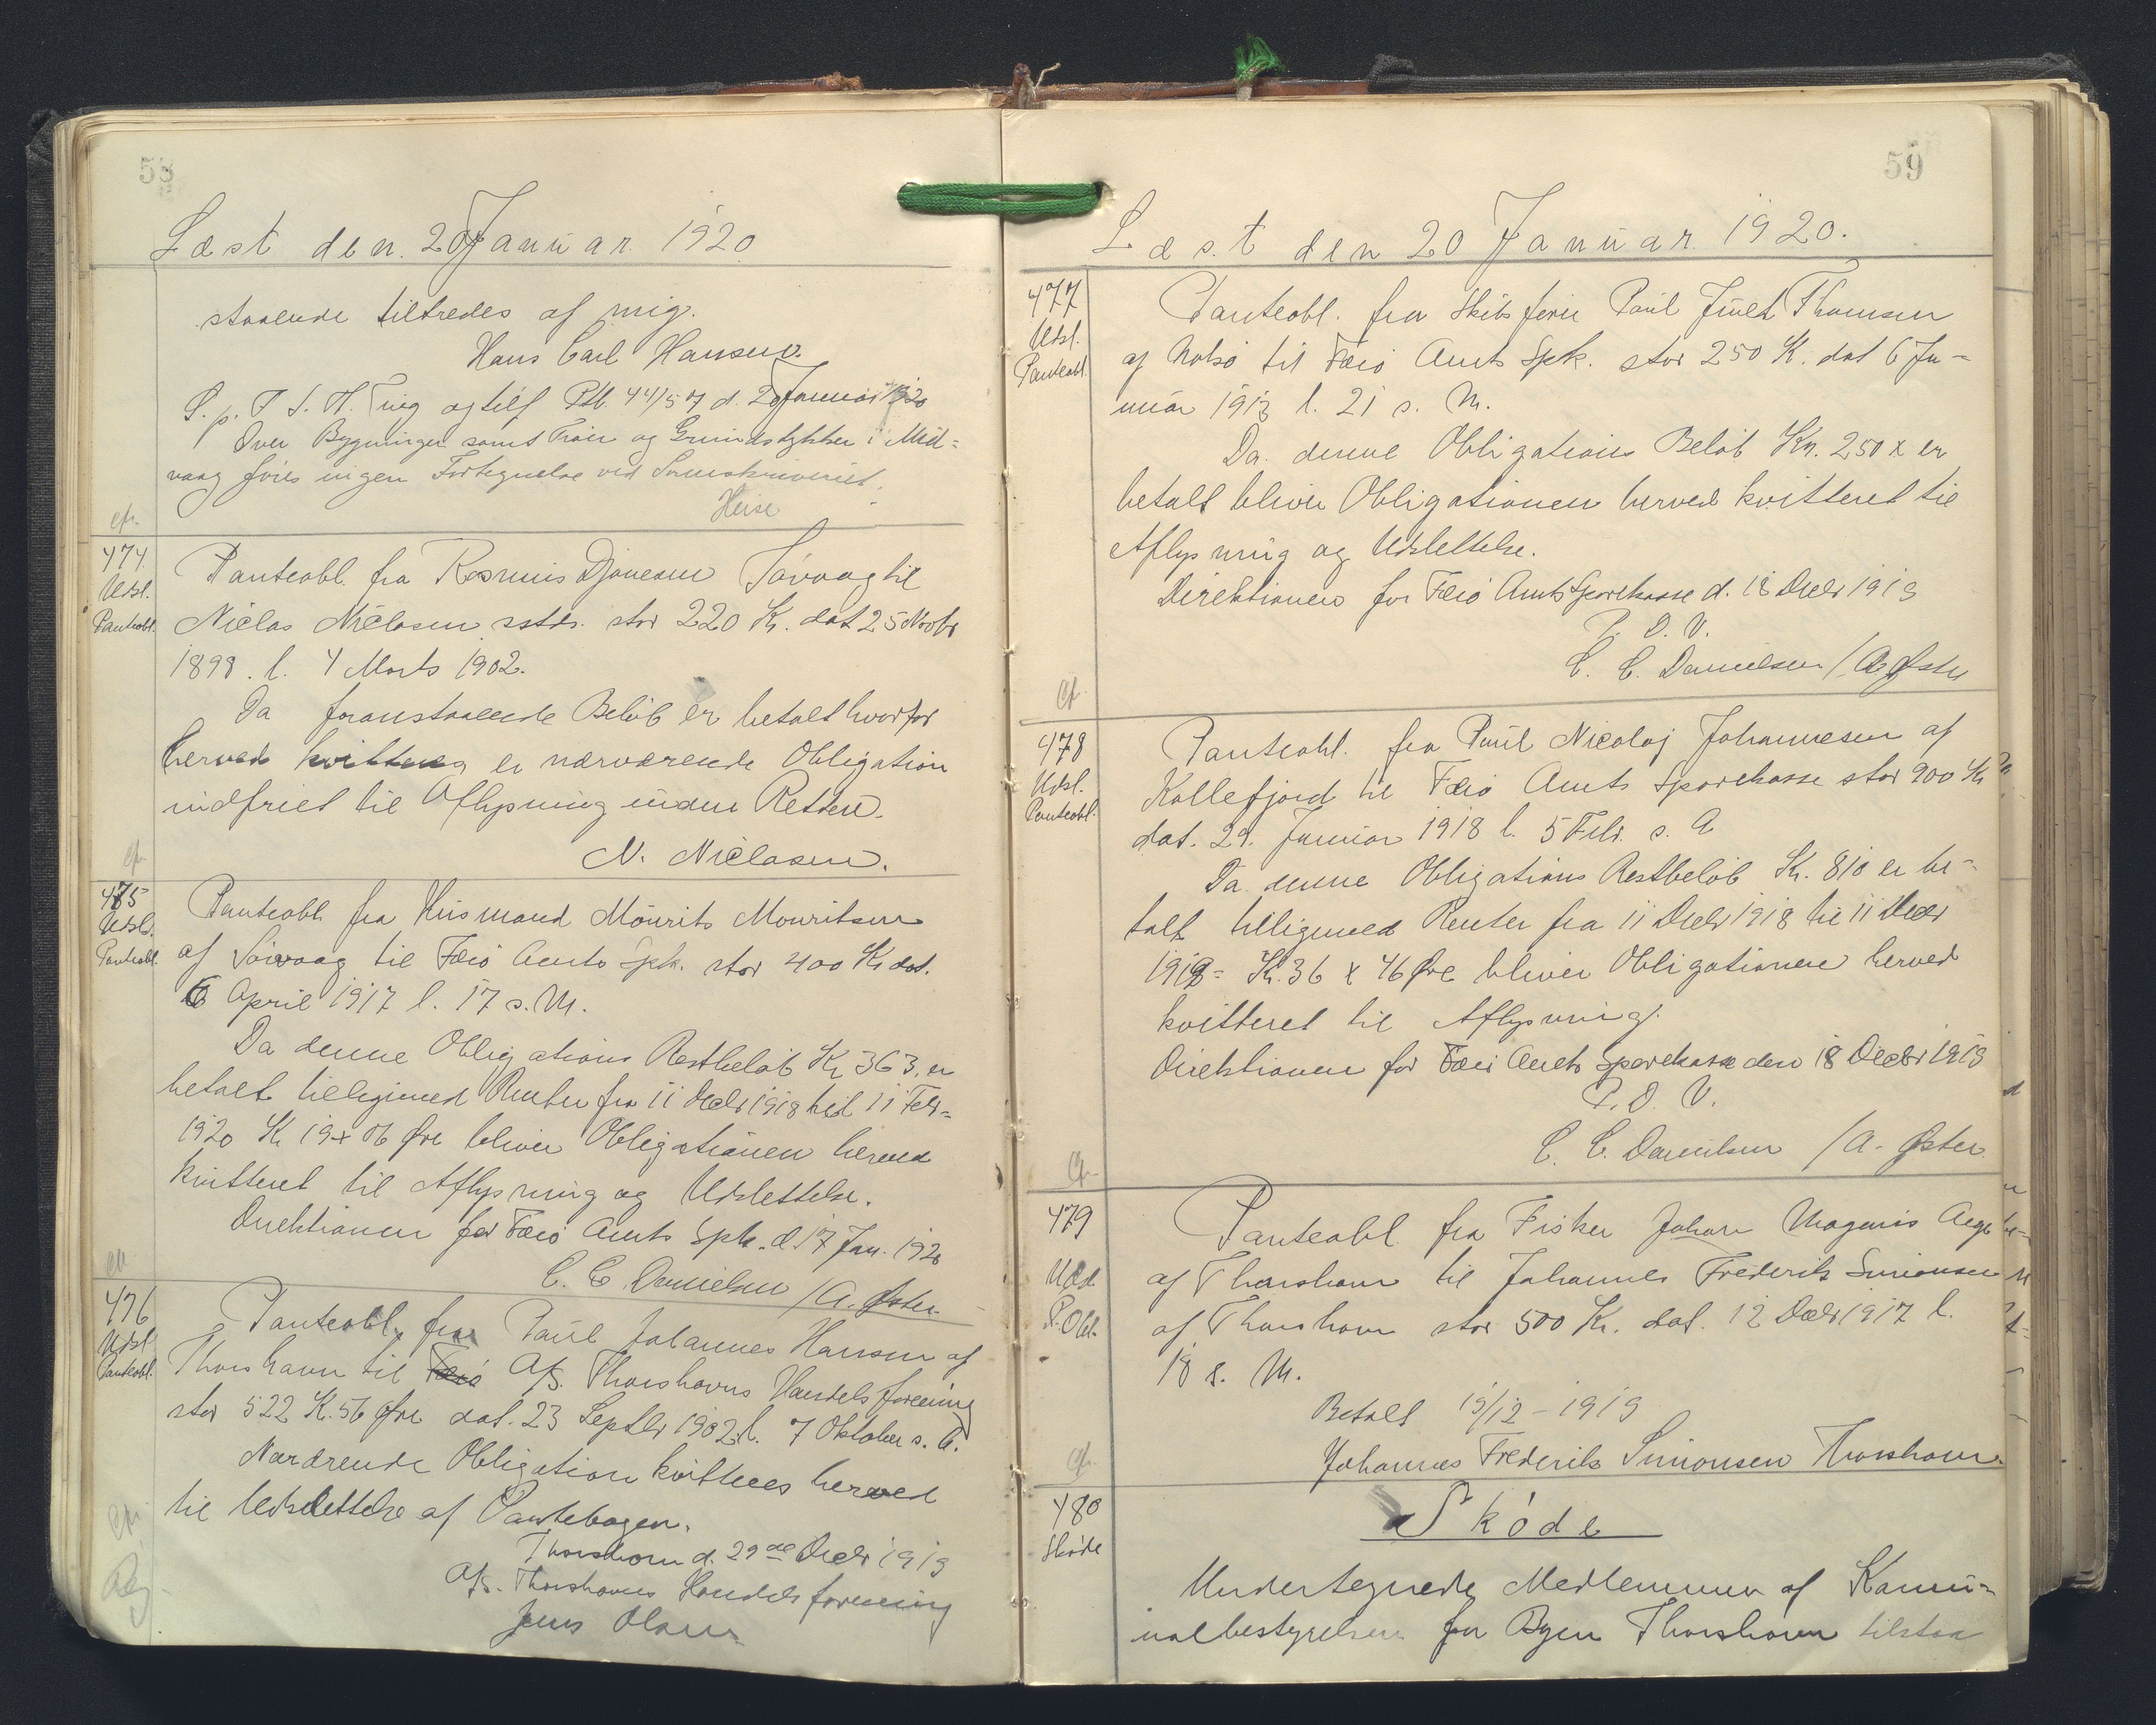 58
Læst den 20 Januar 1920
staaende tiltredes af mig.
Hans Carl Hansen.
S. p. T S. H. Ting og tilf Ptb. 44/507 d. 20 Januar 1920
Over Bygninger samt Tröer og Grundstykker i Mid=
vaag föres ingen Fortegnelse ved Sorenskriveriet.
Heise
cfr.
474.
Udsl.
Panteobl.
Panteobl. fra Rasmus Djonesen Sövaag til
Niclas Niclasen sstds. stor 220 Kr. dat 25 Novbr
1898. l. 4 Marts 1902.
Da foranstaaende Belöb er betalt hvorfor
herved kvitteres er nærværende Obligation
indfriet til Aflysning inden Retten.
N. Niclasen.
cfr.
475
Udsl.
Panteobl.
Panteobl. fra Husmand Mourits Mouritsen
af Sörvaag til Færö Amts Spk. stor 400 Kr dat.
6 April 1917 l. 17 s. M.
Da denne Obligations Restbelöb Kr 363. er
betalt tilligemed Renter fra 11 Decbr 1918 til 11 Febr=
1920 Kr 19 x 06 Øre bliver Obligationen herved
kvitteret til Aflysning og Udslettelse.
Direktionen for Færö Amts Spk. d. 17 Jan. 1920
C. C. Danielsen / A. Øster
cfr
476
Udsl
Panteobl.
Panteobl. fra Paul Johannes Hansen af
Thorshavn til Færö A/S. Thorshavns Handelsforening
stor 522 Kr. 56 Øre dat. 23 Septbr 1902 l. 7 Oktober s. A.
Nærværende Obligation kvitteres herved
til Udslettelse af Pantebogen.
Thorshavn d. 29de Decbr 1919
A/S. Thorshavns Handelsforening
Jens Olsen
cfr.
59
Læst den 20 Januar 1920.
477
Udsl.
Panteobl.
Panteobl. fra Skibsförer Paul Juul Thomsen
af Nolsö til Færö Amts Spk. stor 250 Kr. dat 6 Ja=
nuar 1913 l. 21 s. M.
Da denne Obligations Belöb Kr. 250 x er
betalt bliver Obligationen herved kvitteret til
Aflysning og Udslettelse.
Direktionen for Færö Amts Sparekasse d. 18 Decbr 1919
P. D. V.
C. C. Danielsen / A Øster
cfr
478
Udsl.
Panteobl.
Panteobl. fra Paul Nicolaj Johannesen af
Kollefjord til Færö Amts Sparekasse stor 900 Kr
dat. 29. Januar 1918 l. 5 Febr. s. A
Da denne Obligations Restbelöb Kr. 810 er be=
talt tilligemed Renter fra 11 Decbr 1918 til 11 Decbr
1919= Kr. 36 x 46 Øre bliver Obligationen herved
kvitteret til Aflysning.
Direktionen for Færö Amts Sparekasse den 18 Decbr 1919
P. D. V.
C. C. Danielsen / A. Øster.
cfr
479
Udsl
P. Obl.
Panteobl. fra Fisker Johan Magnus Aage
af Thorshavn til Johannes Frederik Simonsen
af Thorshavn stor 500 Kr. dat. 12 Decbr 1917 l.
18 s. M.
Betalt 19/12 - 1919
Johannes Frederik Simonsen Thorshavn.
cfr.
480
Sköde
Sköde
Undertegnede Medlemmer af Kommu=
nalbestyrelsen for Byen Thorshavn tilstaa